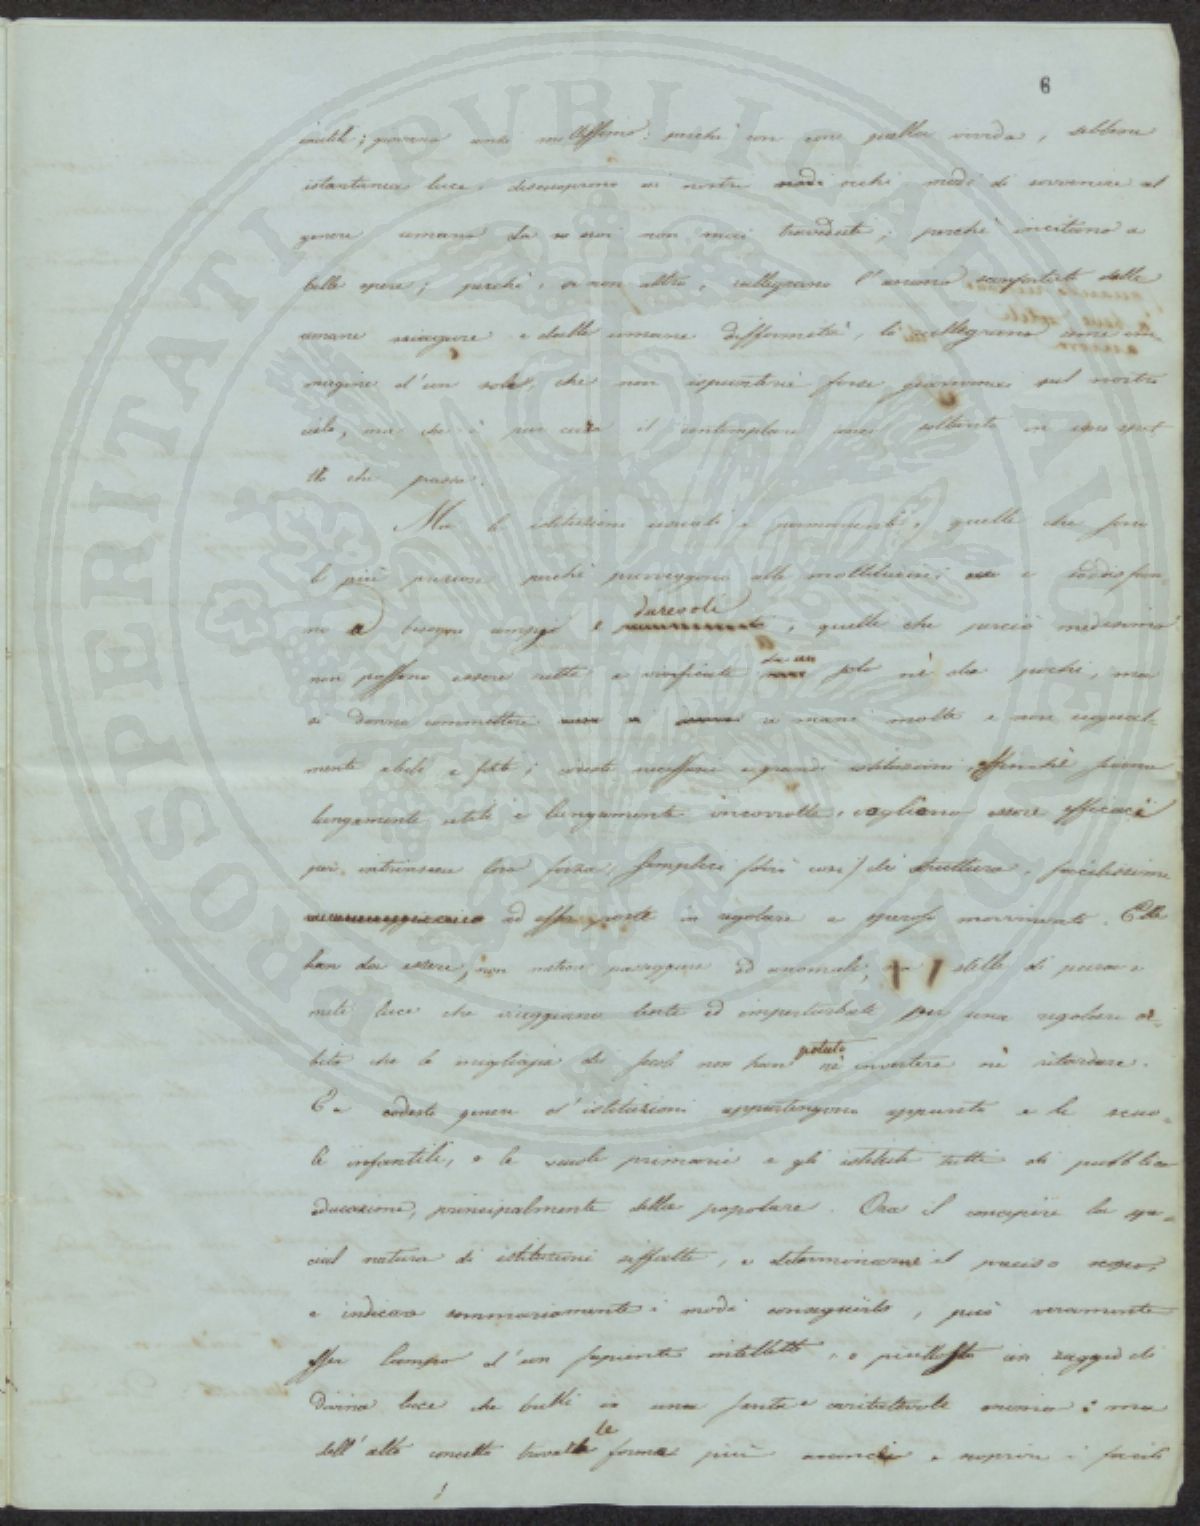 6
inutili; giovano anzi moltissimo: perchè con con quella vivida, sebbene
istantanea luce, discuoprono ai nostri occhi modi di sovvenire al
genere umano da noi non mai traveduti; perchè incitano a
belle opere; perchè, se non altro, rallegrano l'animo dalle
umane sciagure e dalle umane difformità, lo rallegrano come im-
magine d'un sole, che non ispunterà forse giammai sul nostro
cielo, ma che è pur cara il contemplare anco soltanto in uno
che passa.
Ma le istituzioni usuali e permanenti, quelle che sono
le più preziose perchè provveggono alle moltitudini e soddisfan-
no a bisogni ampj e durevoli, quelle che perciò medesimo
non possono essere rette e vivificate da un solo nè da pochi, ma
si denno commettere a mani molte e non ugual-
mente abili e fide; coteste necessarie e grandi istituzioni, affinchè sieno
lungamente utili e lungamente incorrotte, vogliono essere efficaci
per intrinseca loro forza, semplici (dirò così) di struttura, facilissime
ad esser poste in regolare e operoso movimento. Elle
han da essere, non meteore passeggere ed anomale, ma stelle di pura e
mite luce che viaggiano lente ed imperturbate per una regolare or-
bita che le migliaja di secoli non han potuto nè invertere nè ritardare.
E a codesto genere d'istituzioni appartengono appunto e le scuo-
le infantili, e le scuole primarie e gli istituti tutti di pubblica
educazione, principalmente della popolare. Ora il concepire la spe-
cial natura di istituzioni siffatte, e determinarne il preciso scopo,
e indicare sommariamente i modi conseguirlo, può veramente
esser lampo d'un sapiente intelletto, o piuttosto un raggio di
divina luce che brilli in una santa e caritatevole anima: ma
dell'alto concetto trovare le forme più acconcie e scoprire i facili